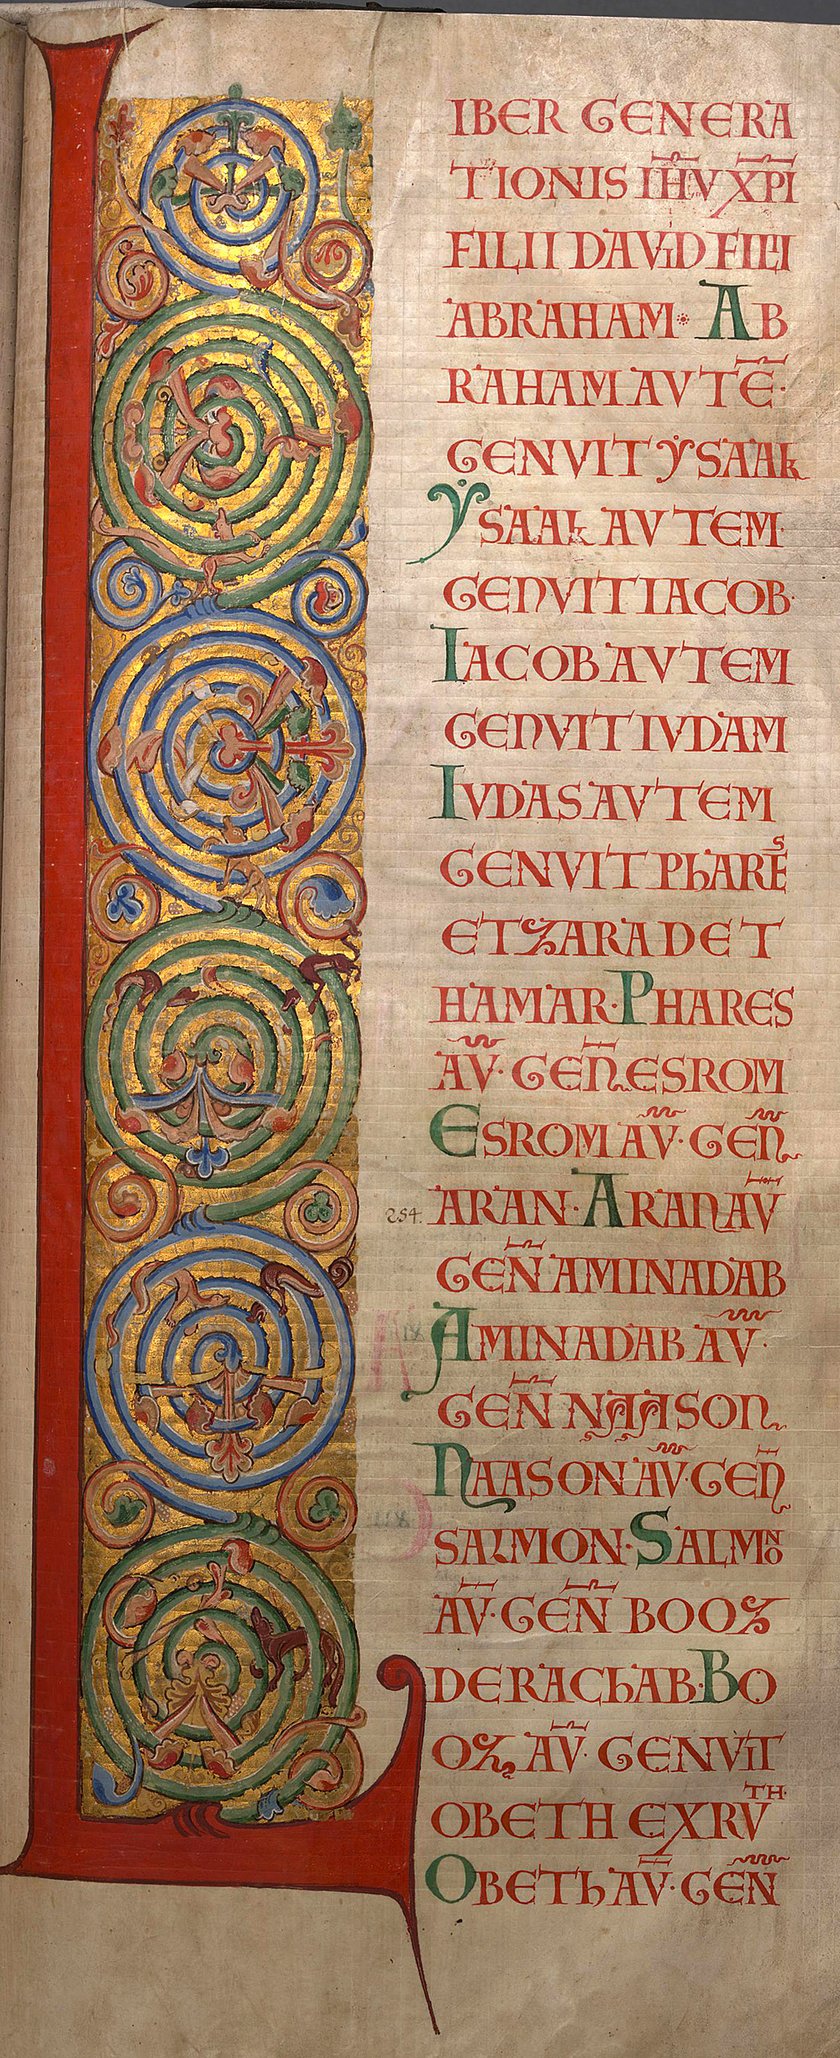 LIBER GENERA
TIONIS IHV XPI
FILII DAVID FILII
ABRAHAM. AB
RAHAM AVTE.
GENVIT YSAAk
YSAAk AVTEM.
GENVIT IACOB.
IACOB AVTEM
GENVIT IVDAM
IVDAS AVTEM
GENVIT PhARES
ET ZARAD ET
HAMAR. PHARES
AV. GEN ESROM
ESROM AV. GEN
254. ARAN. ARAN AV
GEN AMINADAB
AMINADAB AV.
GEN NAASON
NAASON AV. GEN
SALMON. SALMNO
AV. GEN BOOZ
DE RAChAB. BO
OZ AV. GENVIT
OBETH EX RVTH.
OBETh AV. GEN